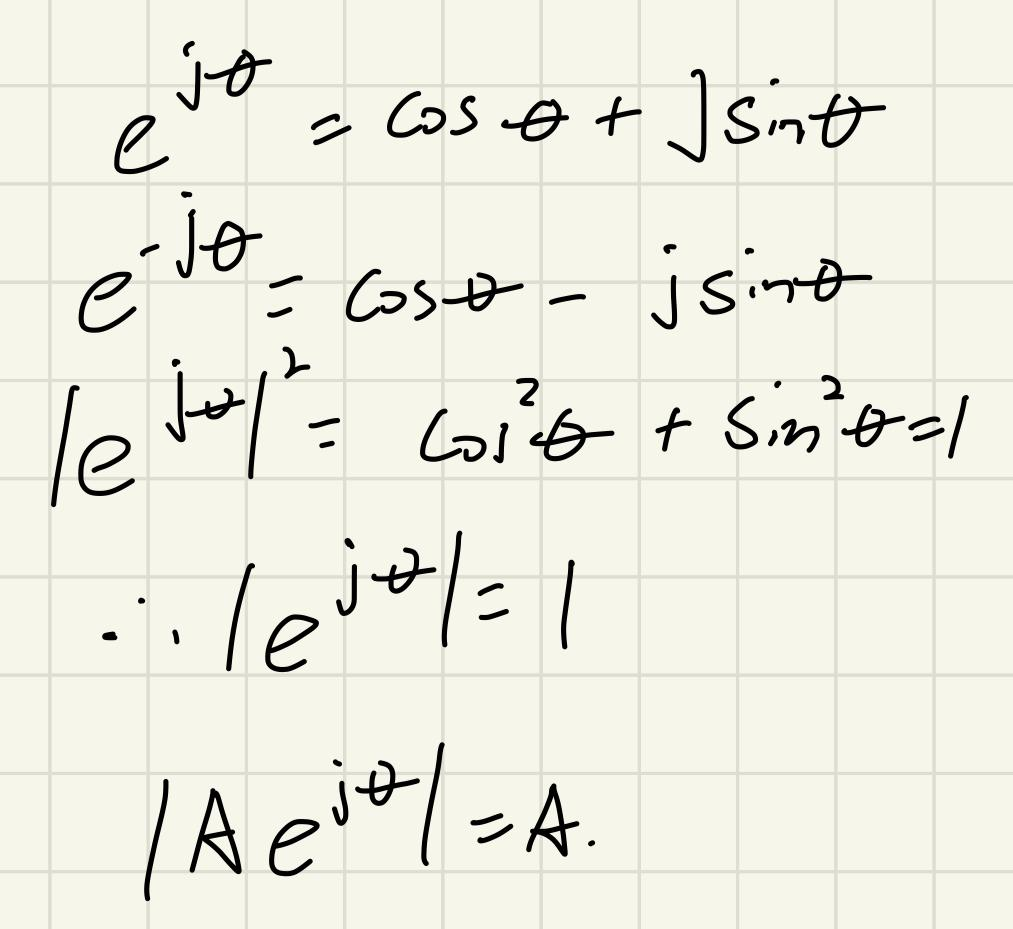 e^{jθ} = cosθ + jsinθ
e^{-jθ} = cosθ - jsinθ
|e^{jθ}|² = cos²θ + sin²θ = 1
∴ |e^{jθ}| = 1
|Ae^{jθ}| = A.